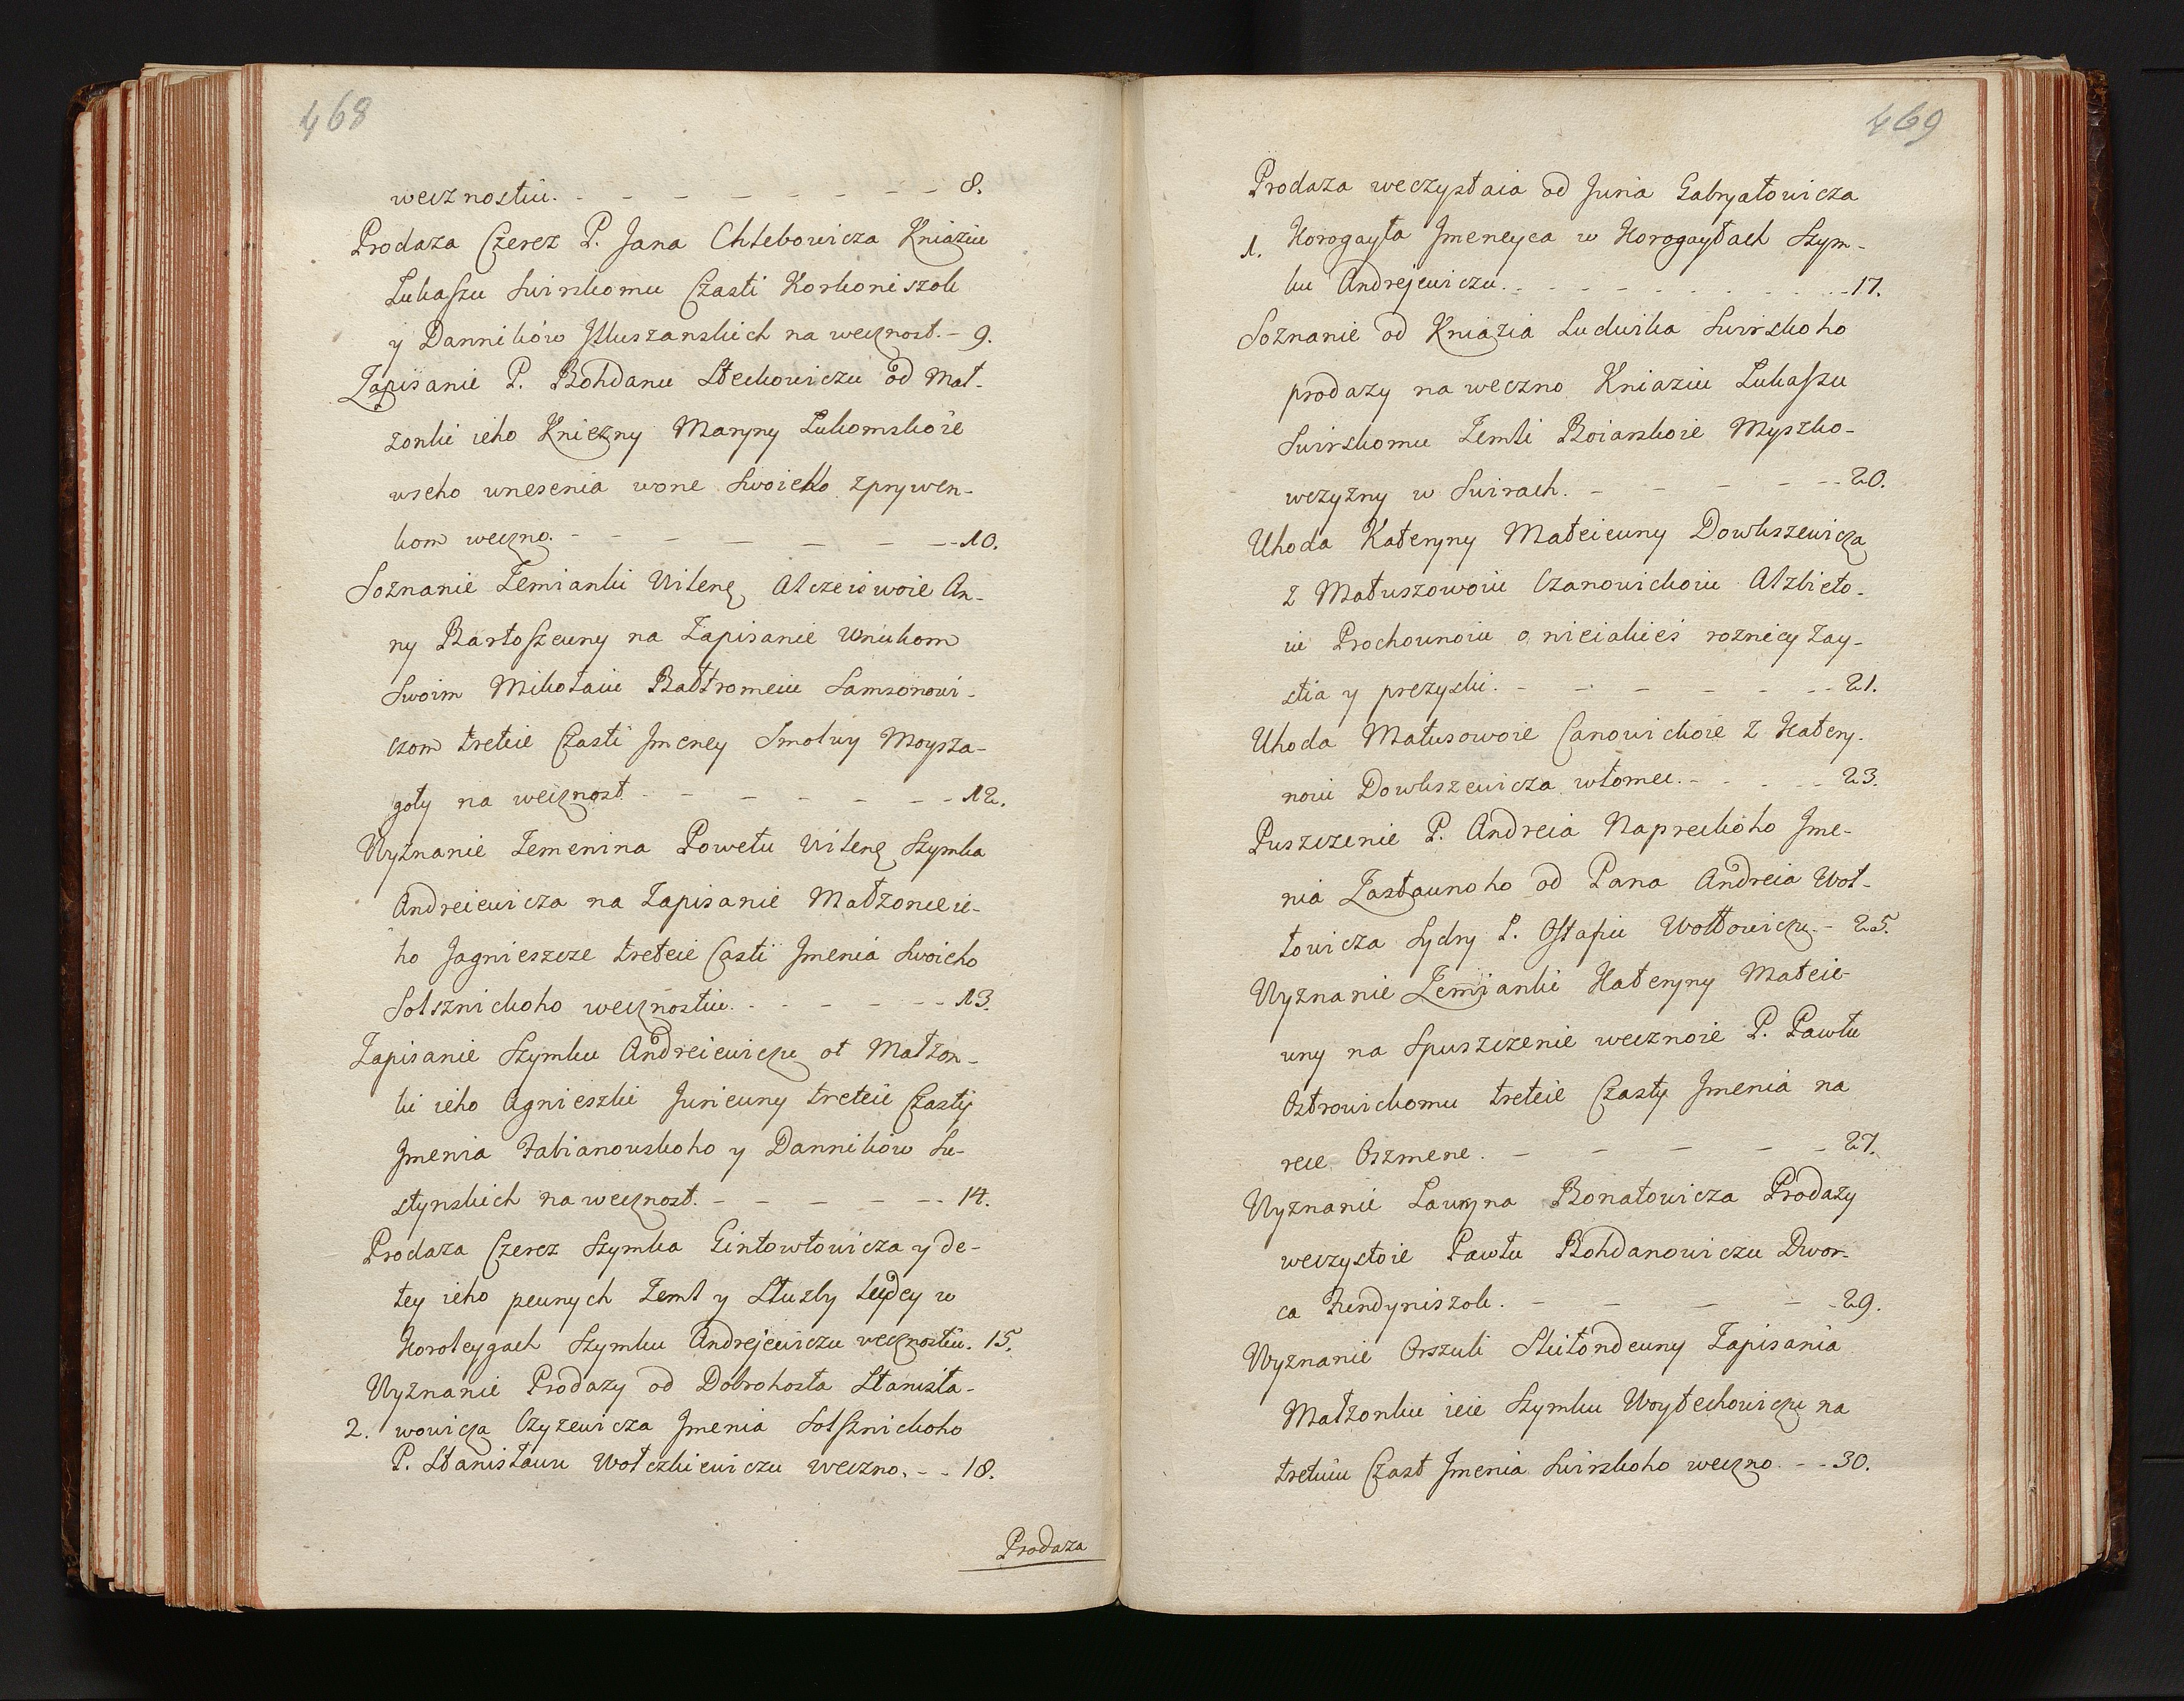 468
wecznostiu. - - - - - - - - 8.
Prodaża Czerez P. Jana Chlebowicza Kniaziu
Lukaszu Swirskomu Czasti Korkoniszok
y Dannikòw Jłuszanskich na wecznost. - 9.
Zapisanie P. Bohdanu Steckowiczu od Mał-
żonki ieho Kniezny Maryny Łukomskoie
wseho unesenia wone Swoieho z prywen-
kom weczno. - - - - - - - 10.
Soznanie Zemianki Wilenę Alczeiowoie An-
ny Bartoszewny na Zapisanie Wnukom
Swoim Mikołaiu Bałtromeiu Samsonowi-
czom treteie Czasti Jmeney Smolwy Moysza-
goły na wecznost. - - - - - - - 12.
Wyznanie Zemenina Powetu Wilenę Szymka
Andreiewicza na Zapisanie Małżonce ie-
ho Jagnieszcze treteie Casti Jmenia Swoieho
Solsznickoho wecznostiu. - - - - - 13.
Zapisanie Szymku Andreiewiczu ot Małżon-
ki ieho Agnieszki Juriewny treteie Czasty
Jmenia Fabianowskoho y Dannikòw Su-
styńskich na wecznost. - - - - - 14.
Prodaża Czerez Szymka Gintowtowicza y de-
tey ieho pewnych Zeml y Służby Ludey w
Horoleygach Szymku Andrejewiczu wecznostiu. 15.
Wyznanie Prodaży od Dobrohosta Stanisła-
2. wowicza Czyżewicza Jmenia Solsznickoho
P. Stanisławu Wołczkiewiczu weczno. - - 18.
Prodaża
469
Prodaża weczystaia od Juria Gabryałowicza
1. Horogayła Jmeneyca w Horogayłach Szym-
ku Andrejewiczu. - - - - - - - 17.
Soznanie od Kniazia Ludwika Swirskoho
prodaży na weczno Kniaziu Lukaszu
Swirskomu Zemli Boiarskoie Myszko-
wczyzny w Swirach. - - - - - 20.
Uhoda Kateryny Mateiewny Dowkszewicza
z Matuszowoiu Czanowickoiu Alzbieto-
iu Prochownoiu o nieiakieś roznicy Zay-
stia y prezyski. - - - - - - 21.
Uhoda Matusowoie Canowickoie z Katery-
noiu Dowkszewicza wtomce. - - - - 23.
Puszczenie P. Andreia Napreckoho Jme-
nia Zastawnoho od Pana Andreia Woł-
łowicza Sydry P. Ostafiu Wołłowiczu. - 25.
Wyznanie Zemianki Kateryny Mateie-
wny na Spuszczenie wecznoie P. Pawłu
Ostrowickomu treteie Czasty Jmenia na
rece Oszmene. - - - - - 27.
Wyznanie Lawryna Bonatowicza Prodaży
weczystoie Pawłu Bohdanowiczu Dwor-
ca Zundyniszok. - - - - - 29.
Wyznanie Orszuli Skitondewny Zapisania
Małżonku ieie Szymku Woytechowiczu na
tretuiu Czast Jmenia Swirskoho weczno. - - 30.